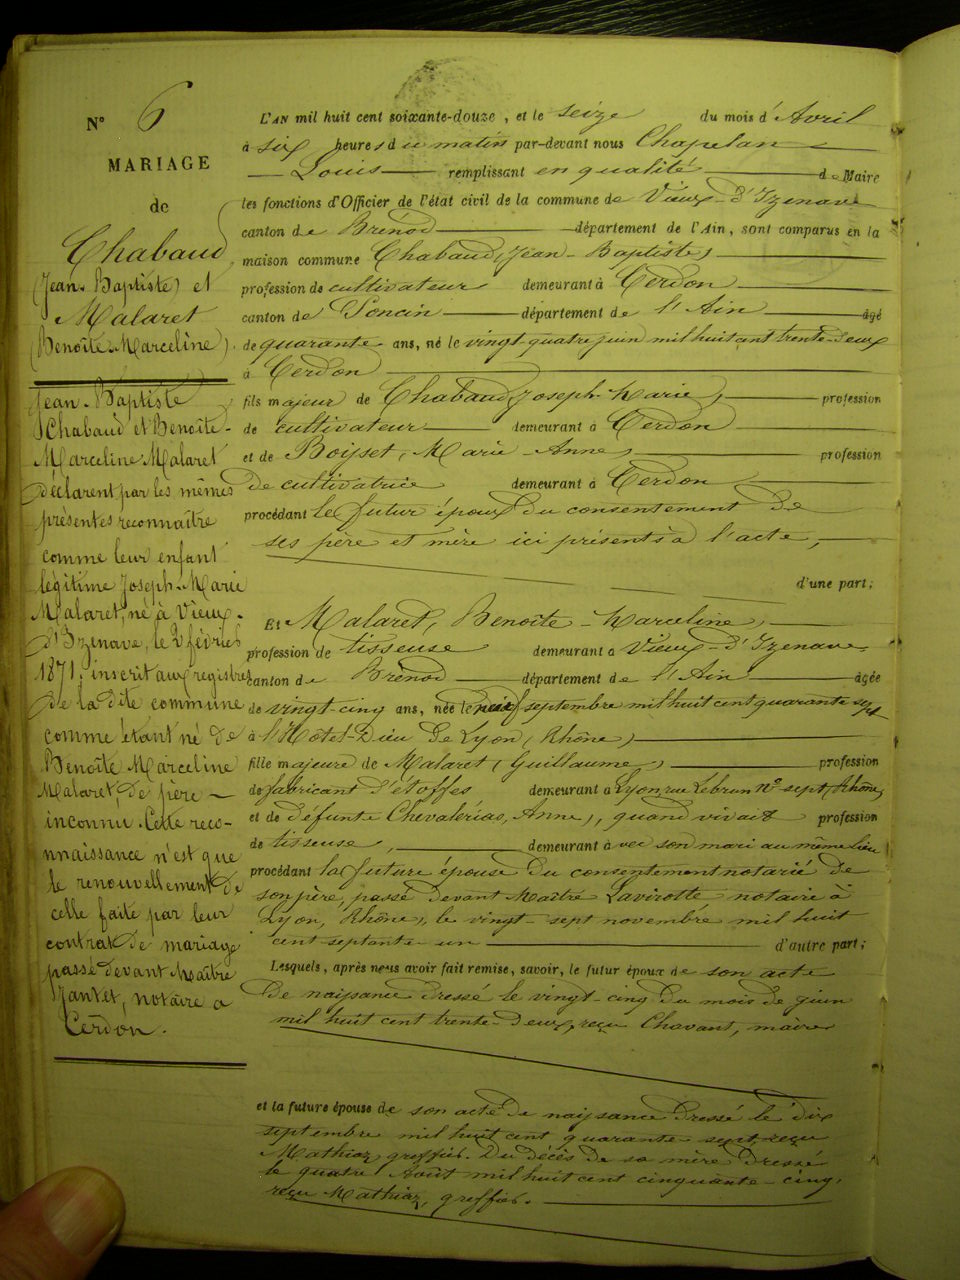 N° 6
MARIAGE
de
Chabaud
(Jean-Baptiste) et
Malaret
(Benoîte-Marceline).
Jean-Baptiste
Chabaud et Benoîte-
Marceline Malaret
déclarent par les mêmes
présentes reconnaître
comme leur enfant
légitime Joseph-Marie
Malaret, né à Vieux-
d'Izenave, le 2 février
1871, inscrit aux registres
de la dite commune
comme étant né de
Benoîte Marceline
Malaret, de père
inconnu. Cette reco-
nnaissance n'est que
le renouvellement de
celle faite par leur
contrat de mariage
passé devant Maître
Jantet, notaire a
Cerdon.
L'AN mil huit cent soixante-douze, et le seize du mois d'Avril
à six heures du matin par-devant nous Chapelan
Louis remplissant en qualité de Maire
les fonctions d'Officier de l'état civil de la commune de Vieux-d'Izenave
canton de Brénod département de l'Ain, sont comparus en la
maison commune Chabaud, (Jean-Baptiste)
profession de cultivateur demeurant à Cerdon
canton de Poncin département de l'Ain âgé
de quarante ans, né le vingt-quatre juin mil huit cent trente-deux
à Cerdon
fils majeur de Chabaud, (Joseph-Marie), profession
de cultivateur demeurant à Cerdon
et de Boisset, (Marie-Anne) profession
de cultivatrice demeurant à Cerdon
procédant le futur époux du consentement de
ses père et mère ici présents à l'acte,
d'une part;
Et Malaret, Benoîte-Marceline,
profession de tisseuse demeurant à Vieux-d'Izenave
canton de Brénod département de l'Ain âgée
de vingt-cinq ans, née le neuf septembre mil huit cent quarante sept
à l'Hôtel-Dieu de Lyon, (Rhône)
fille majeure de Malaret, (Guillaume,) profession
de fabricant d'étoffes demeurant à Lyon, rue Lebrun N° sept, (Rhône,)
et de défunte Anne), quand vivait profession
de tisseuse, demeurant à vec son mari au même lieu
procédant la future épouse du consentement notarié de
son père, passé devant Maître Lavirotte notaire à
Lyon, (Rhône), le vingt-sept novembre mil huit
cent septante-un d'autre part;
Lesquels, après nous avoir fait remise, savoir, le futur époux de son acte
de naissance dressé le vingt-cinq du mois de juin
mil huit cent trente-deux, reçu Chavant, maire
et la future épouse de son acte de naissance dressé le dix
septembre mil huit cent quarante-sept, reçu
greffier. Du décès de sa mère dressé
le quatre Août mil huit cent cinquante-cinq,
reçu greffier.